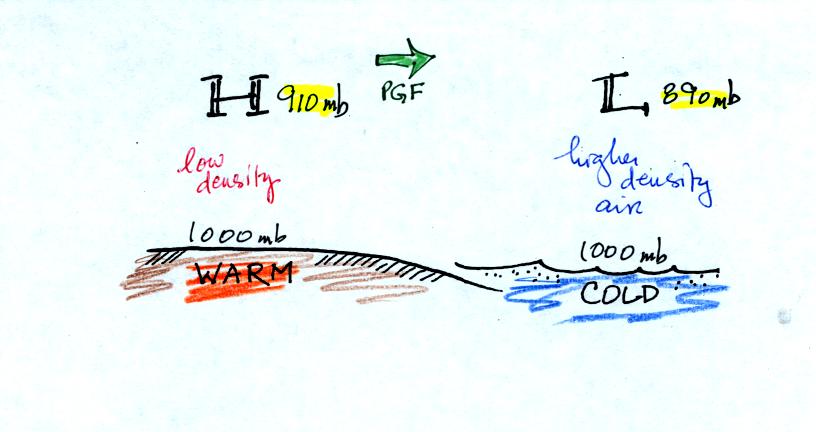 H 910 mb
PGF
L 890 mb
low
density
higher
density
air
1000 mb
WARM
1000 mb
COLD